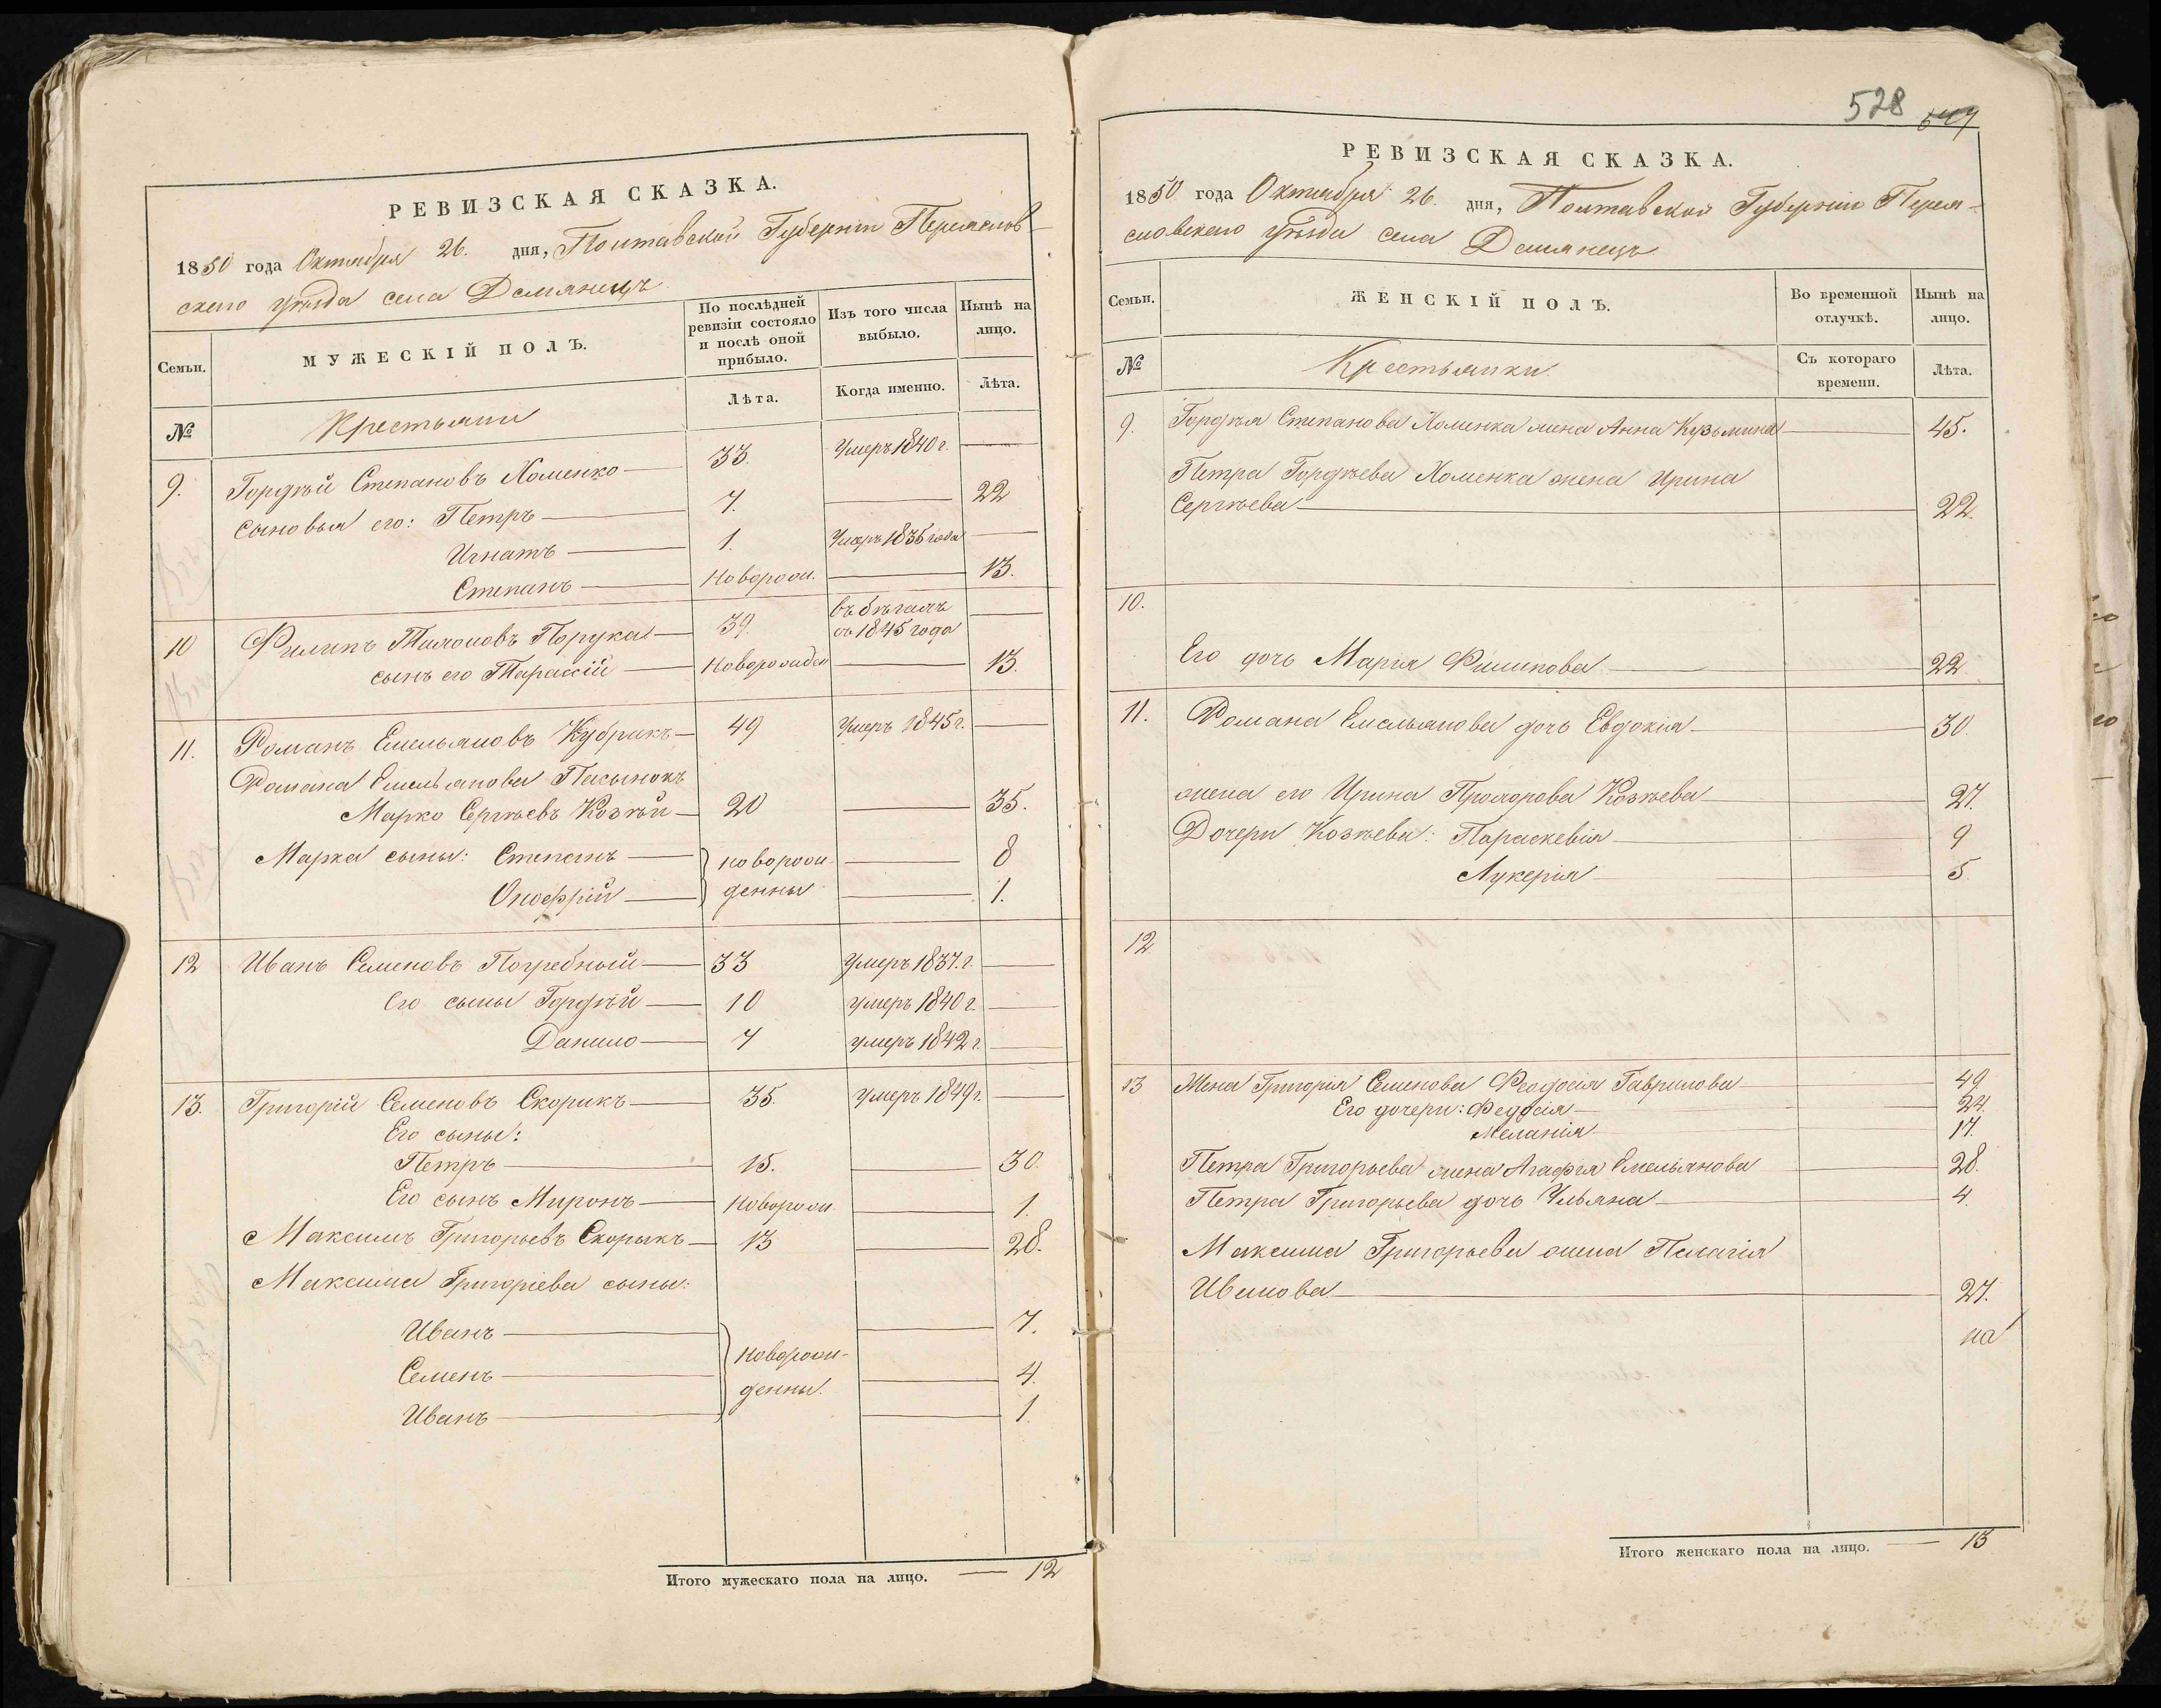 РЕВИЗСКАЯ СКАЗКА.
1850 года Октября 26. дня, Полтавской Губерніи Переяслов-
скаго уѣзда села Демянецъ
Семьи.
МУЖЕСКІЙ ПОЛЪ.
По послѣдней ревизіи состояло и послѣ оной прибыло.
Изъ того числа выбыло.
Нынѣ на лицо.
№
Крестьяни
Лѣта.
Когда именно.
Лѣта.
9. Гордѣй Степановъ Хоменко — 33. Умеръ 1840 г. —
сыновья его: Петръ — 7. — 22
Игнатъ — 1. Умеръ 1836 года —
Степанъ — Новорож. — 13.
10 Филипъ Тихоновъ Порукa — 39. въ бѣгахъ съ 1845 года —
сынъ его Тарасій — Новорожден — 13.
11. Романъ Емельяновъ Кубракъ — 49 Умеръ 1845 г. —
Романа Емельянова Пасынокъ
Марко Сергѣевъ Козѣй — 20 — 35.
Марка сыны: Степанъ — новорож- — 8
Онофрій — денны — 1.
12 Иванъ Семеновъ Погребный — 33 Умеръ 1837. г. —
Его сыны Гордѣй — 10 умеръ 1840 г. —
Данило — 7 умеръ 1842 г. —
13. Григорій Семеновъ Скорикъ — 35. Умеръ 1849 г. —
Его сыны:
Петръ — 15. — 30.
Его сынъ Миронъ — Новорож. — 1.
Максимъ Григорьевъ Скорыкъ — 13 — 28.
Максима Григоріева сыны:
Иванъ — 7.
Семенъ — новорож-денны. — 4.
Иванъ — 1.
Итого мужескаго пола на лицо. — 12
528
РЕВИЗСКАЯ СКАЗКА.
1850 года Октября 26. дня, Полтавской Губерніи Перея-
словскаго уѣзда села Демянецъ
Семьи.
ЖЕНСКІЙ ПОЛЪ.
Во временной отлучкѣ.
Нынѣ на лицо.
№
Крестьянки
Съ котораго времени.
Лѣта.
9. Гордѣя Степанова Хоменка жена Анна Кузьмина — 45.
Петра Гордѣева Хоменка жена Ирина
Сергѣева — 22.
10.
Его дочь Марія Филипова — 22
11. Романа Емельянова дочь Евдокія — 30.
жена его Ирина Прохорова Козѣева — 27.
Дочери Козѣева: Параскевія — 9
Лукерія — 5.
12
13 Жена Григорія Семенова Феодосія Гаврилова — 49
Его дочери: Федосія — 24.
Меланія — 17.
Петра Григорьева жена Агафія Емельянова — 28.
Петра Григорьева дочь Ульяна — 4.
Максима Григорьева жена Пелагія
Иванова — 27.
на
Итого женскаго пола на лицо. — 13